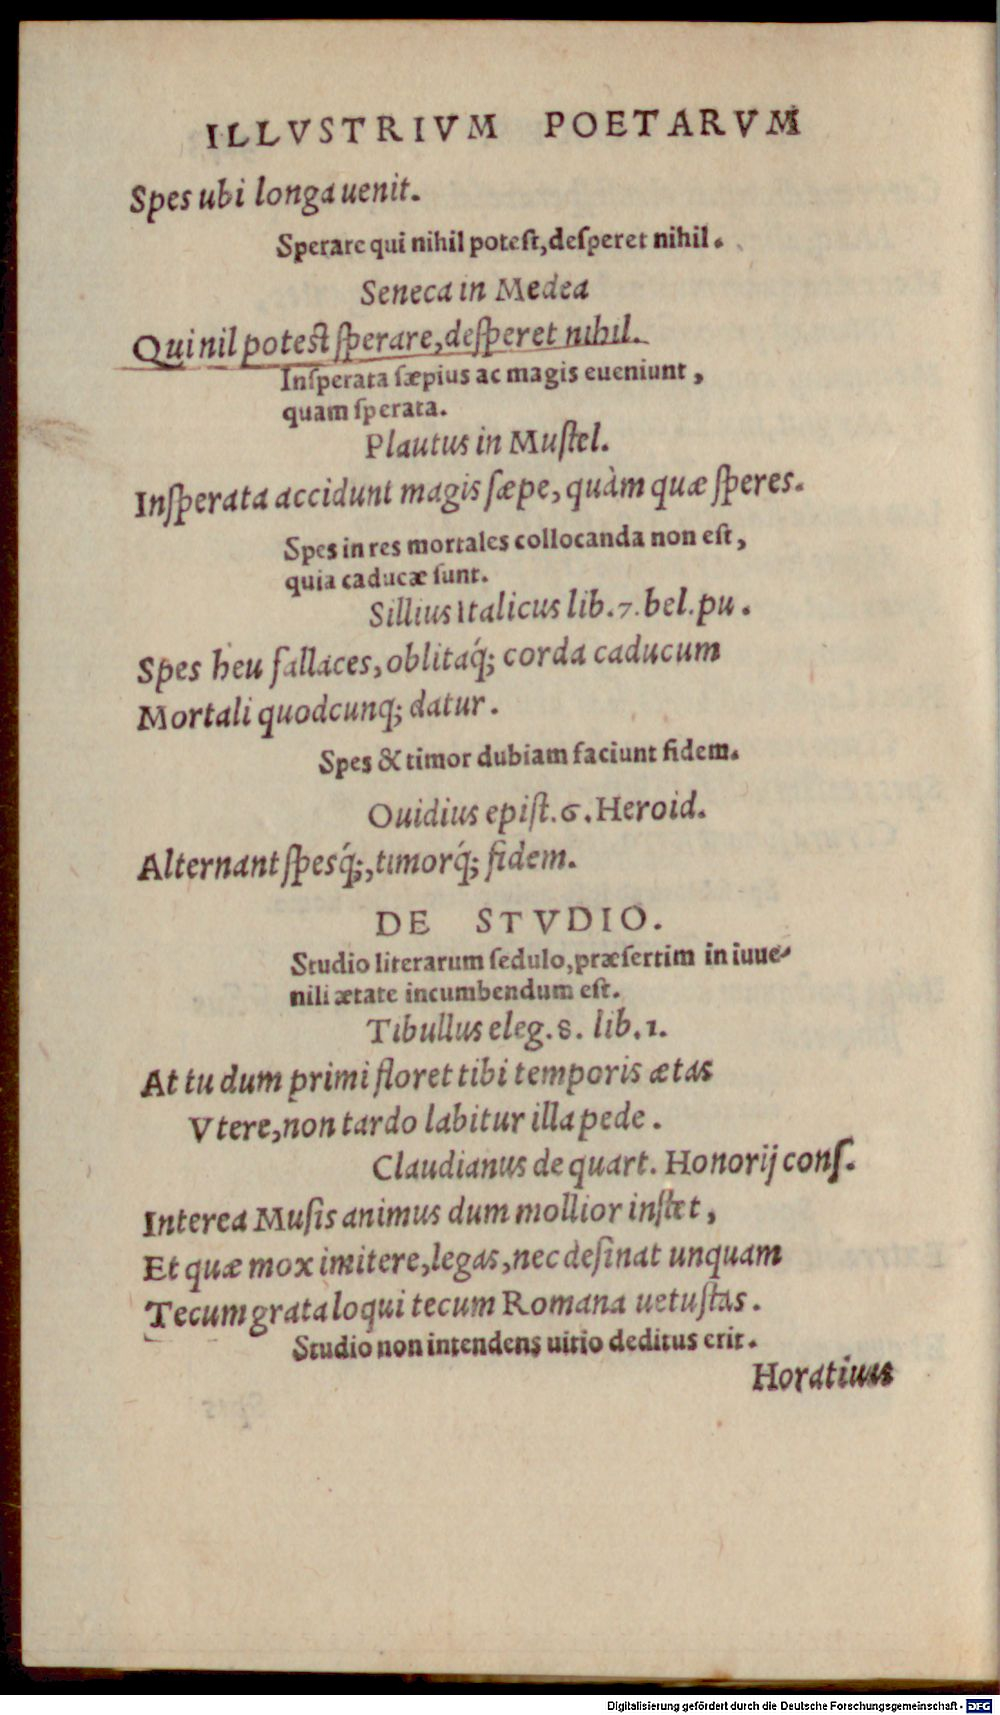 ILLVSTRIVM POETARVM
Spes ubi longa uenit.
Sperare qui nihil poteſt, deſperet nihil.
Seneca in Medea
Qui nil potest ſperare, deſperet nihil.
Inſperata ſæpius ac magis eueniunt,
quam ſperata.
Plautus in Muſtel.
Inſperata accidunt magis ſæpe, quàm quæ ſperes.
Spes in res mortales collocanda non eſt,
quia caducæ ſunt.
Sillius Italicus lib. 7. bel. pu.
Spes heu fallaces, oblitaq́; corda caducum
Mortali quodcunq; datur.
Spes & timor dubiam faciunt fidem.
Ouidius epiſt. 6. Heroid.
Alternant ſpesq́;, timorq́; fidem.
DE STVDIO.
Studio literarum ſedulo, præſertim in iuue-
nili ætate incumbendum eſt.
Tibullus eleg. 8. lib. 1.
At tu dum primi floret tibi temporis ætas
Vtere, non tardo labitur illa pede.
Claudianus de quart. Honorij conſ.
Interea Muſis animus dum mollior inſtet,
Et quæ mox imitere, legas, nec deſinat unquam
Tecum grata loqui tecum Romana uetuſtas.
Studio non intendens uitio deditus erit.
Horatius
Digitalisierung gefördert durch die Deutsche Forschungsgemeinschaft - DFG